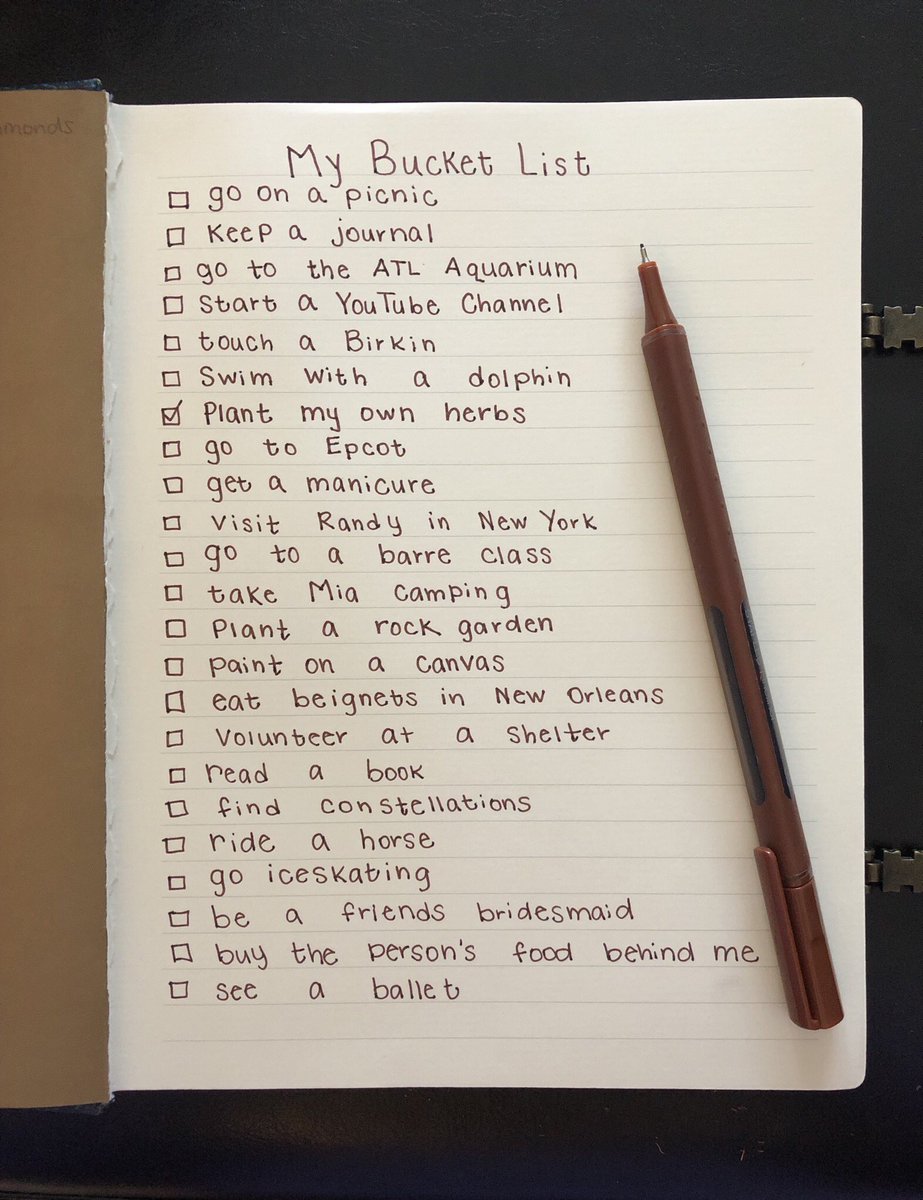 monds
My Bucket List
go on a picnic
Keep a journal
go to the ATL Aquarium
Start a YouTube Channel
touch a Birkin
Swim with a dolphin
Plant my own herbs
go to Epcot
get a manicure
visit Randy in New York
go to a barre class
take Mia camping
Plant a rock garden
paint on a canvas
eat beignets in New Orleans
Volunteer at a shelter
read a book
find constellations
ride a horse
go iceskating
be a friends bridesmaid
buy the person's food behind me
see a ballet